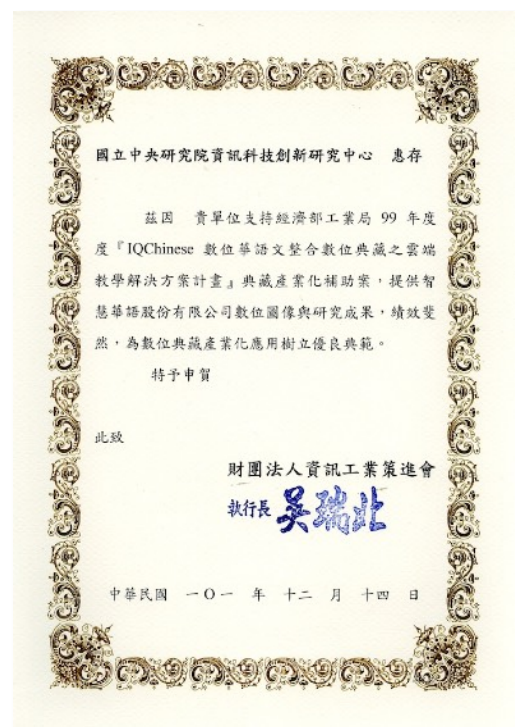 國立中央研究院資訊科技創新研究中心 惠存
茲因 貴單位支持經濟部工業局 99 年度
度『IQChinese 數位華語文整合數位典藏之雲端
教學解決方案計畫』典藏產業化補助案，提供智
慧華語股份有限公司數位圖像與研究成果，績效斐
然，為數位典藏產業化應用樹立優良典範。
特予申賀
此致
財團法人資訊工業策進會
執行長 吳瑞北
中華民國 一O一 年 十二 月 十四 日